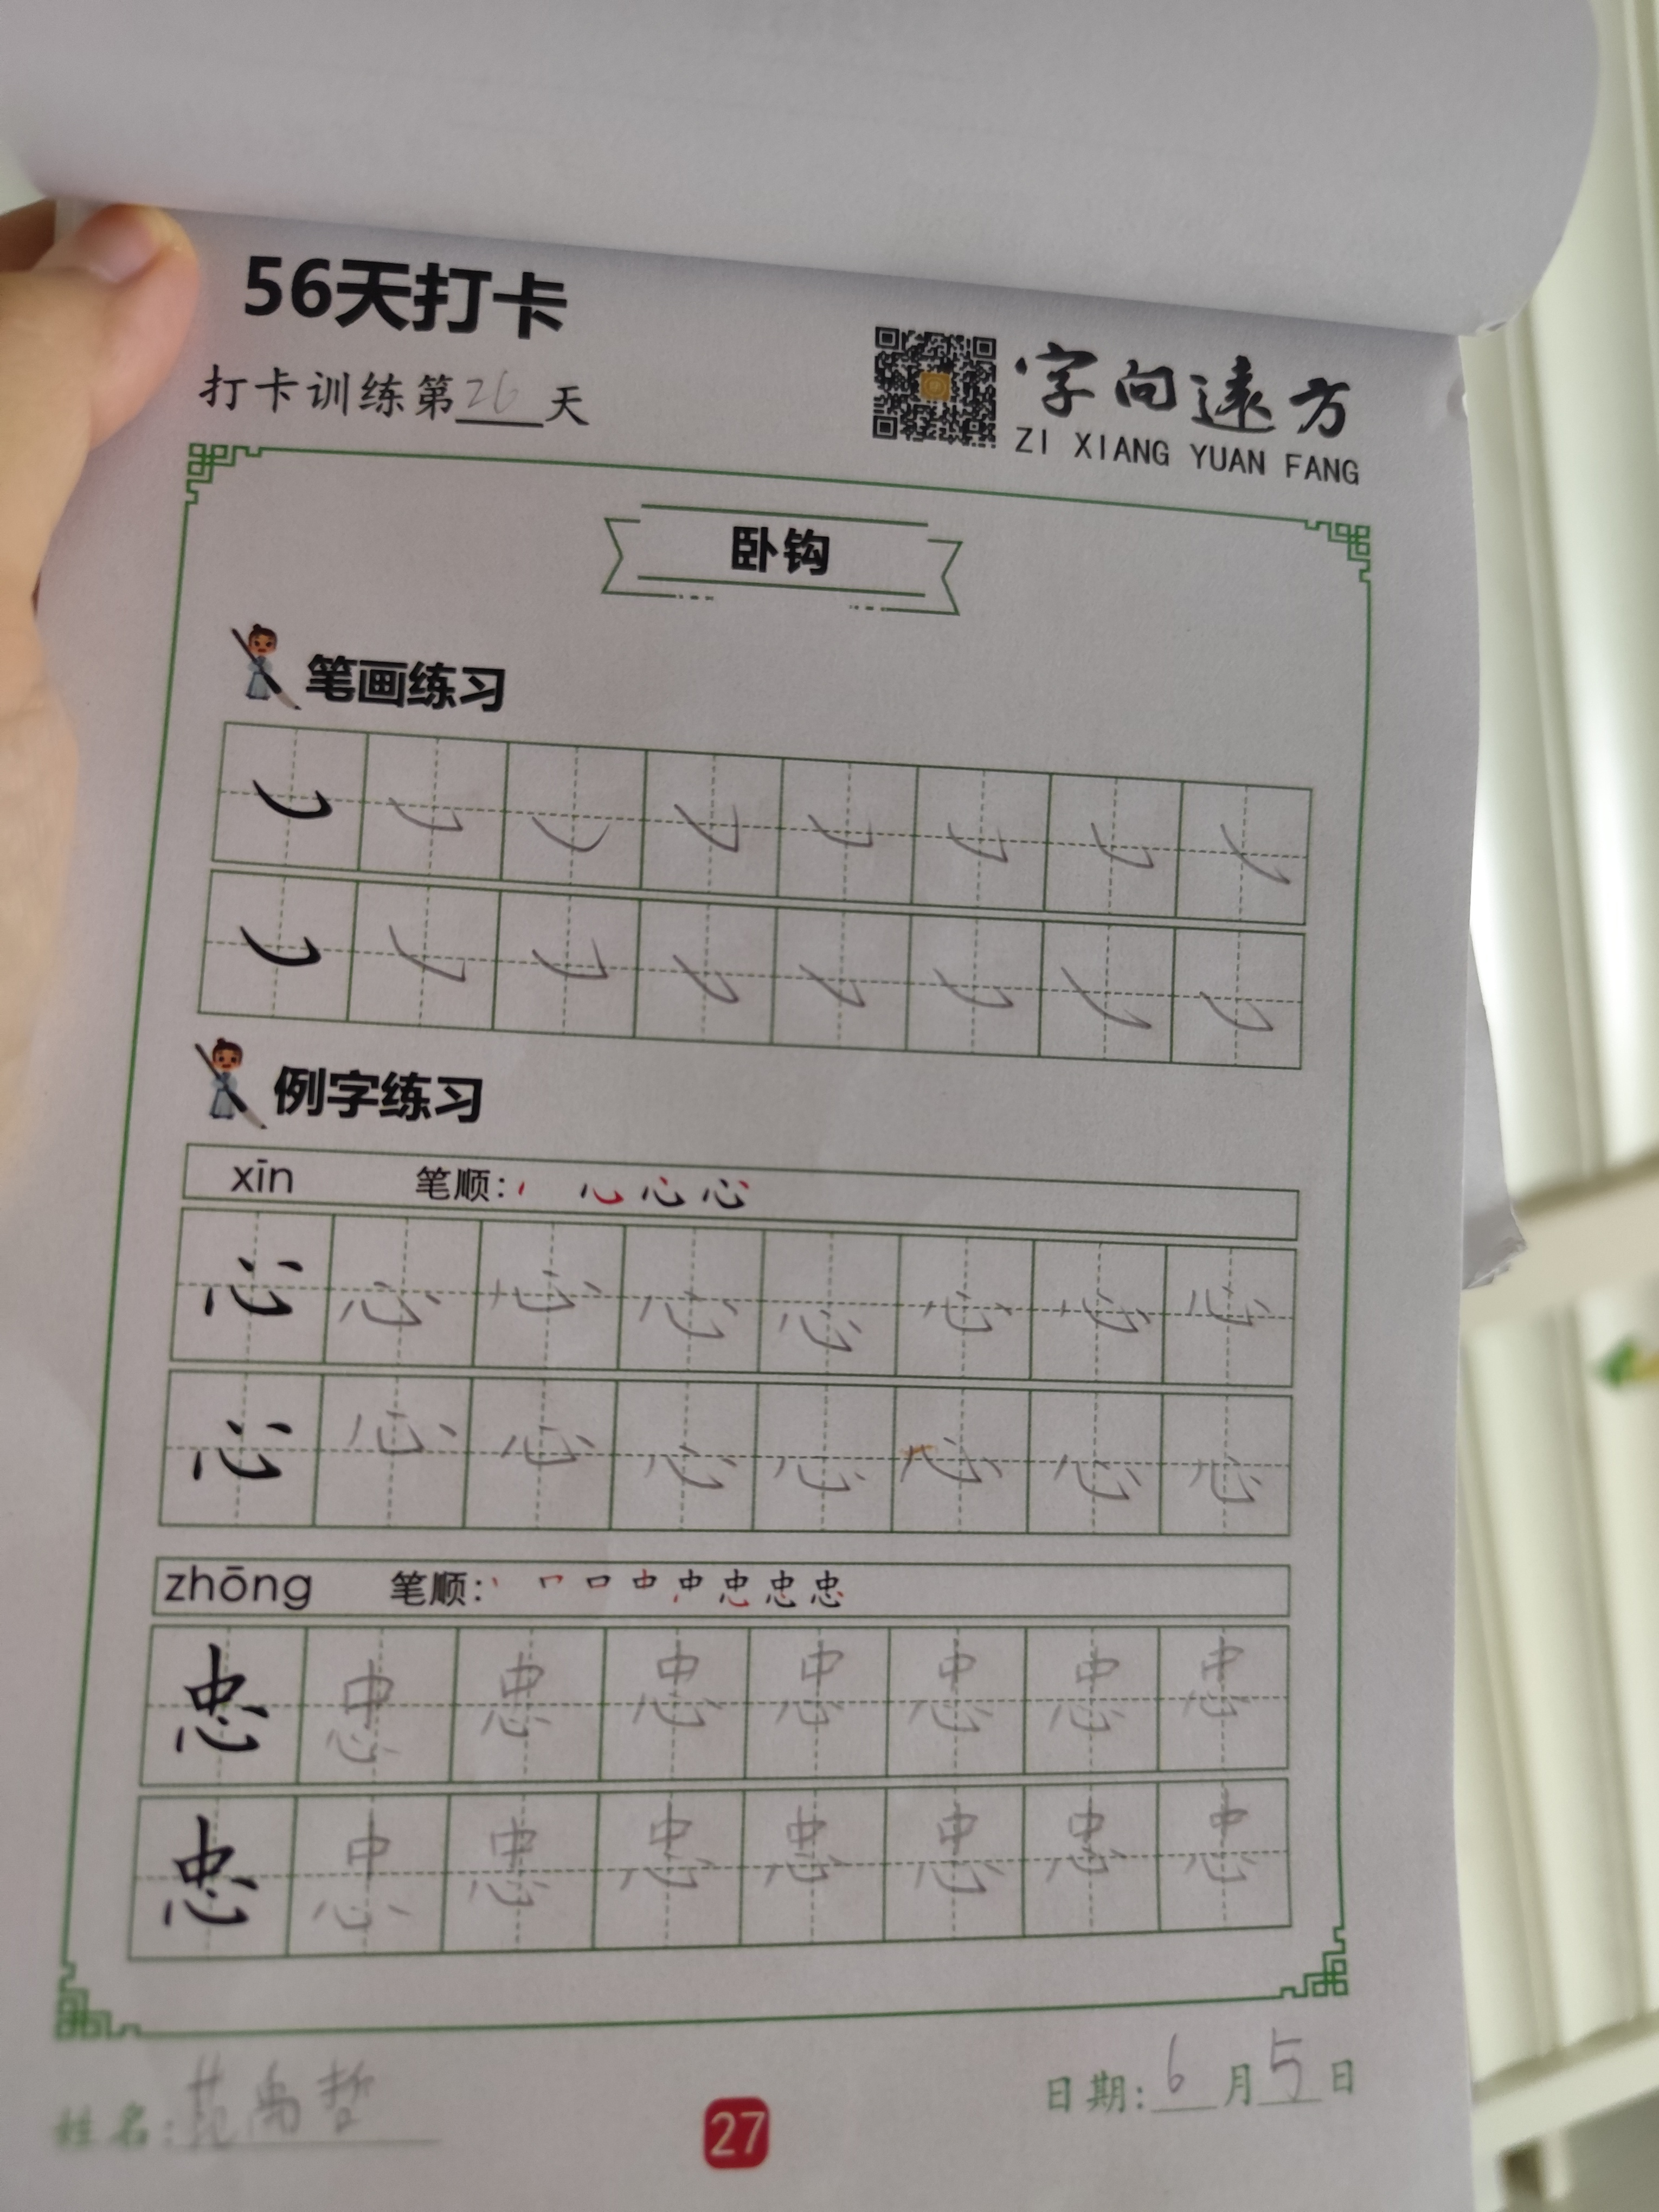 56天打卡
打卡训练第26天
字向遠方
ZI XIANG YUAN FANG
卧钩
笔画练习
㇃ ㇃ ㇃ ㇃ ㇃ ㇃ ㇃ ㇃
㇃ ㇃ ㇃ ㇃ ㇃ ㇃ ㇃ ㇃
例字练习
xīn 笔顺:
心 心 心 心 心 心 心 心
心 心 心 心 心 心 心 心
zhōng 笔顺:
忠 忠 忠 忠 忠 忠 忠 忠
忠 忠 忠 忠 忠 忠 忠 忠
姓名:范禹哲
27
日期:6月5日